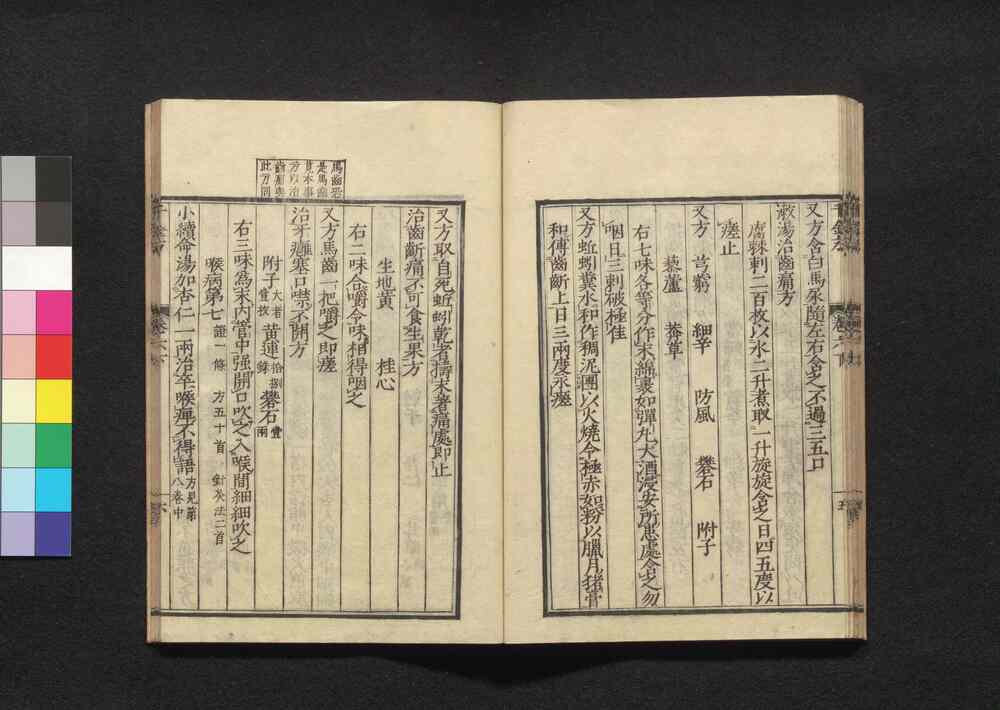 又方含白馬尿隨左右含之不過三五口
漱湯治齒痛方
腐棘刺二百枚以水二升煮取一升旋旋含之日四五度以
瘥止
又方 芎藭 細辛 防風 礬石 附子
藜蘆 莽草
右七味各等分作末綿裹如彈丸大酒浸安所患處含之勿
咽日三刺破極佳
又方蚯蚓糞水和作稠泥團以火燒令極赤如粉以臘月猪膏
和傅齒齗上日三兩度永瘥
五
又方取自死蚯蚓乾者擣末著痛處即止
治齒齗痛不可食生果方
生地黃 桂心
右二味合嚼令味相得咽之
又方馬齒一把嚼之即瘥
治牙癰塞口噤不開方
附子大者壹枚 黃連拾捌銖 礬石壹兩
右三味為末內管中强開口吹之入喉間細細吹之
喉病第七 證一條 方五十首 針灸法二首
小續命湯加杏仁一兩治卒喉痺不得語方見第八卷中
六
馬齒恐
是馬齒
莧本事
方以治
齒痛與
此方同